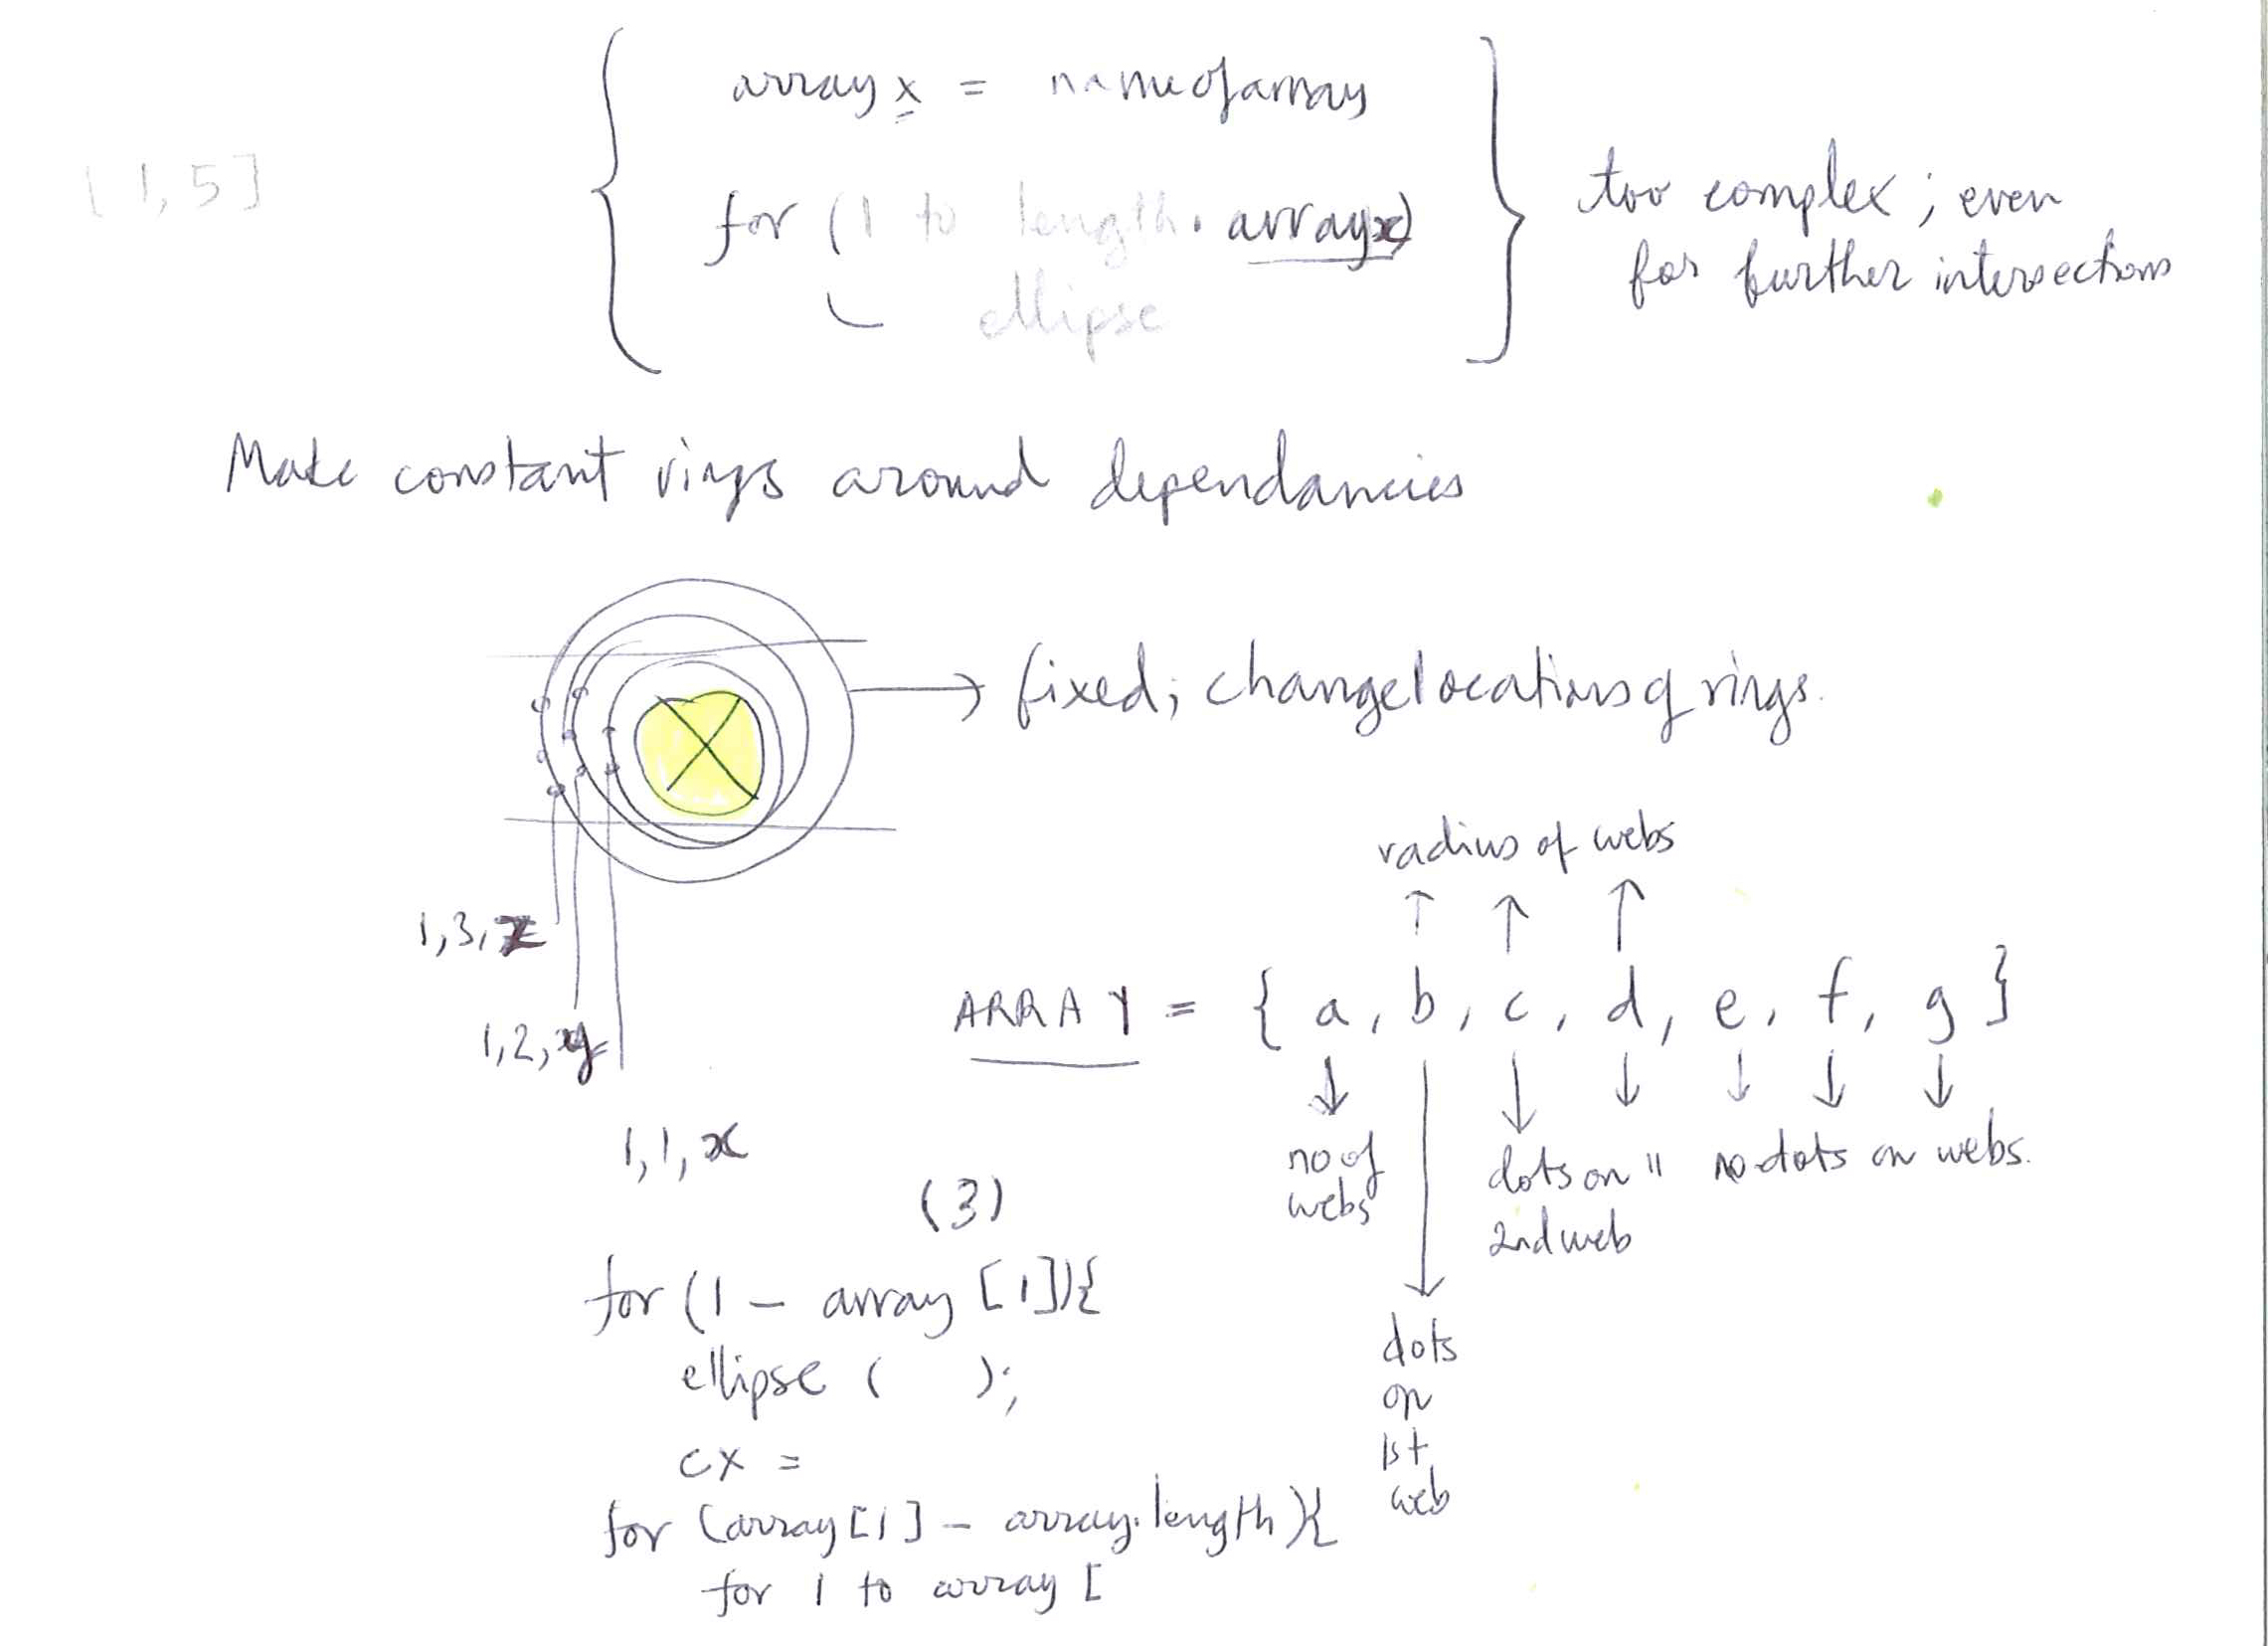 array x = nameofarray
[1,5]
for (1 to length. arrayx)
ellipse
too complex; even
for further intersections
Make constant rings around dependancies
fixed; change locations of rings.
radius of webs
1,3,z
ARRAY = { a, b, c, d, e, f, g }
1,2,y
1,1,x
no of
webs
dots on "
2nd web
no dots on webs.
dots
on
1st
web
(3)
for (1 - array [1]){
ellipse ( );
cx =
for (array[1] - array.length){
for 1 to array [